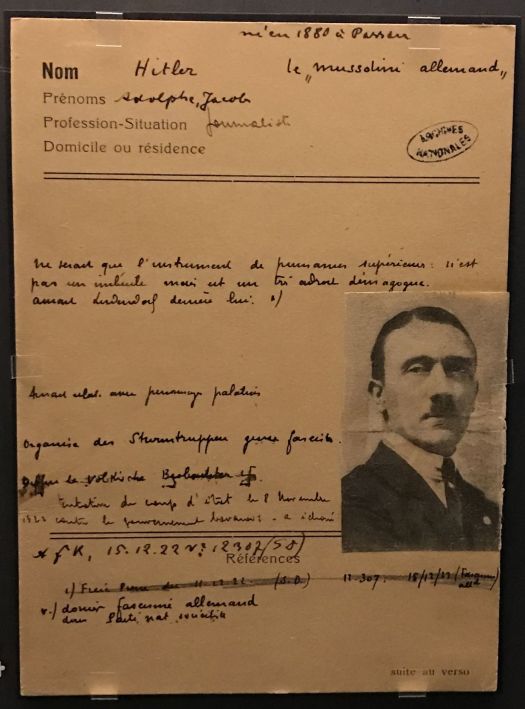 né en 1880 à Passau
Nom Hitler le "Mussolini allemand"
Prénoms Adolphe, Jacob
Profession-Situation Journaliste
Domicile ou résidence
ARCHIVES
NATIONALES
Ne serait que l'instrument de puissances supérieures : n'est
pas un imbécile mais est un très adroit démagogue.
aurait Ludendorf derrière lui.
Aurait avec personnage palatin
Organise des Sturmtruppen genre fasciste.
le Völkische Beobachter
tentative du coup d'état le 8 Novembre
contre le gouvernement bavarois. a échoué
15.12.22 n° 12307
Références
1) 11.12.22 12.307 : 15/12/22
dossier fascisme allemand
dans Parti nat socialiste
suite au verso